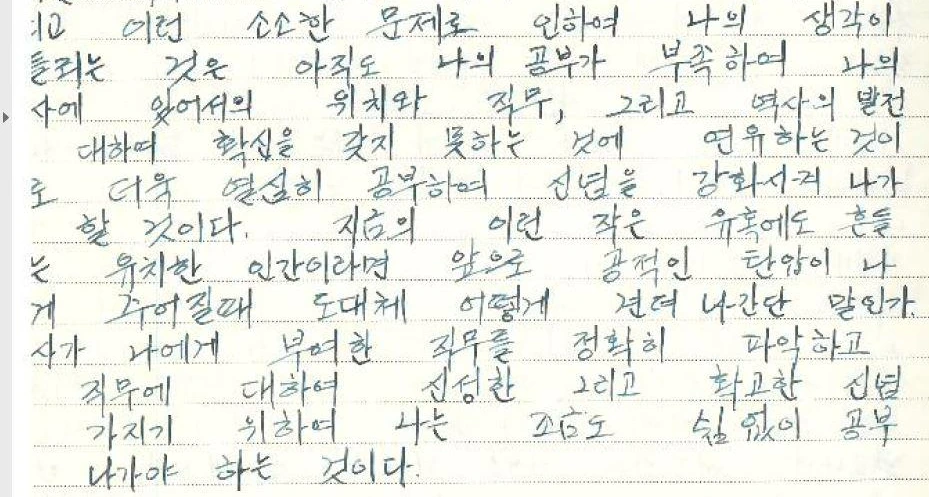 이런 소소한 문제로 인하여 나의 생각이
들리는 것은 아직도 나의 공부가 부족하여 나의
사에 있어서의 위치와 직무, 그리고 역사의 발전
대하여 확신을 갖지 못하는 것에 연유하는 것이
로 더욱 열심히 공부하여 신념을 강화시켜 나가
할 것이다. 지금의 이런 작은 유혹에도 흔들
는 유치한 인간이라면 앞으로 공적인 탄압이 나
게 주어질때 도대체 어떻게 견뎌 나간단 말인가.
사가 나에게 부여한 직무를 정확히 파악하고
직무에 대하여 신성한 그리고 확고한 신념
가지기 위하여 나는 조금도 쉼 없이 공부
나가야 하는 것이다.